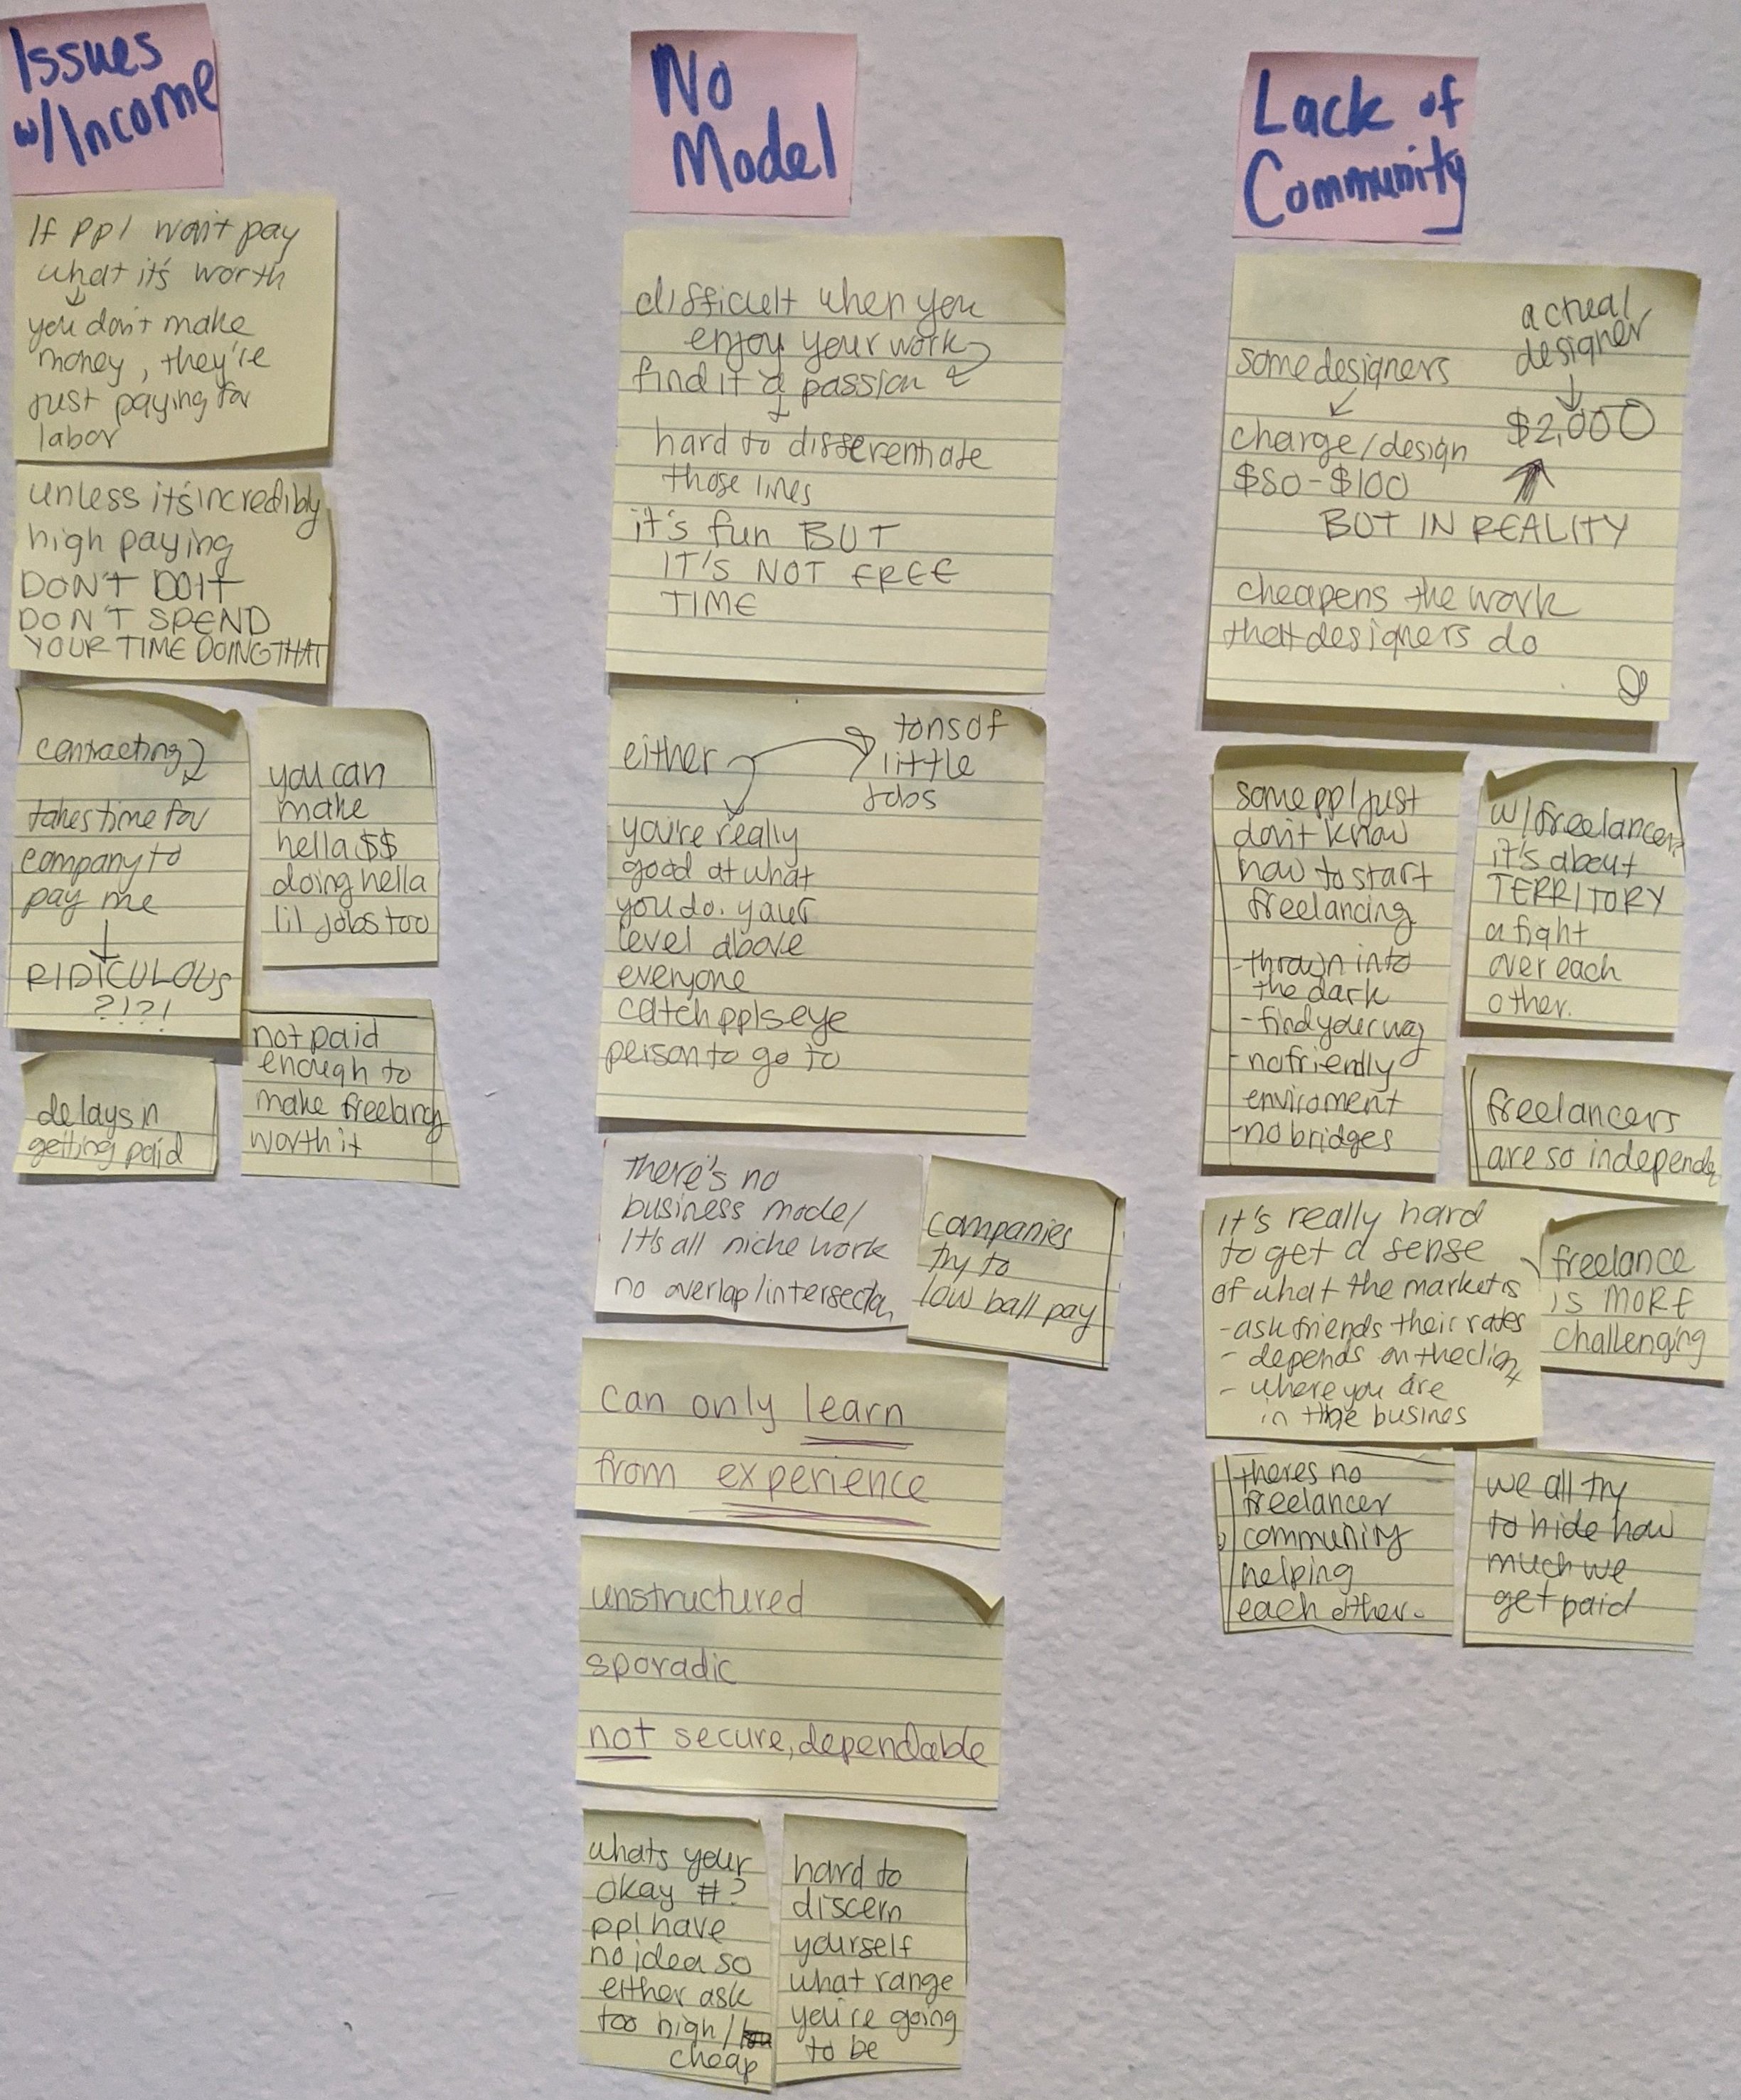 Issues
w/Income
If ppl won't pay
what it's worth
you don't make
money, they're
just paying for
labor
unless it's incredibly
high paying
DON'T DO IT
DON'T SPEND
YOUR TIME DOING THAT
contracting
takes time for
company to
pay me
RIDICULOUS
?!?!
you can
make
hella $$
doing hella
lil jobs too
delays in
getting paid
not paid
enough to
make freelancing
worth it
No
Model
difficult when you
enjoy your work
find it a passion
hard to differentiate
those lines
it's fun BUT
IT'S NOT FREE
TIME
either
tons of
little
jobs
you're really
good at what
you do. your
level above
everyone
catch ppls eye
person to go to
there's no
business model
It's all niche work
no overlap/intersection
companies
try to
low ball pay
can only learn
from experience
unstructured
sporadic
not secure, dependable
whats your
okay #?
ppl have
no idea so
either ask
too high/
cheap
hard to
discern
yourself
what range
you're going
to be
Lack of
Community
actual
designer
$2,000
some designers
charge/design
$80-$100
BUT IN REALITY
cheapens the work
that designers do
some ppl just
don't know
how to start
freelancing
-thrown into
the dark
-find your way
-no friendly
enviroment
-no bridges
w/freelancers
it's about
TERRITORY
a fight
over each
other.
freelancers
are so independent
it's really hard
to get a sense
of what the market is
-ask friends their rates
- depends on the client
- where you are
in the busines
freelance
is MORE
challenging
theres no
freelancer
community
helping
each other.
we all try
to hide how
much we
get paid